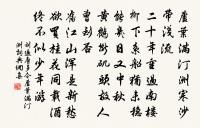 蘆葉滿汀洲寒沙
帶淺流
二十年重過南樓
柳下繫船猶未穩
能幾日又中秋
黃鶴斷磯頭故人
曾到否
舊江山渾是新愁
欲買桂花同載酒
終不似少年游
劉過唐多令蘆葉滿汀
洲